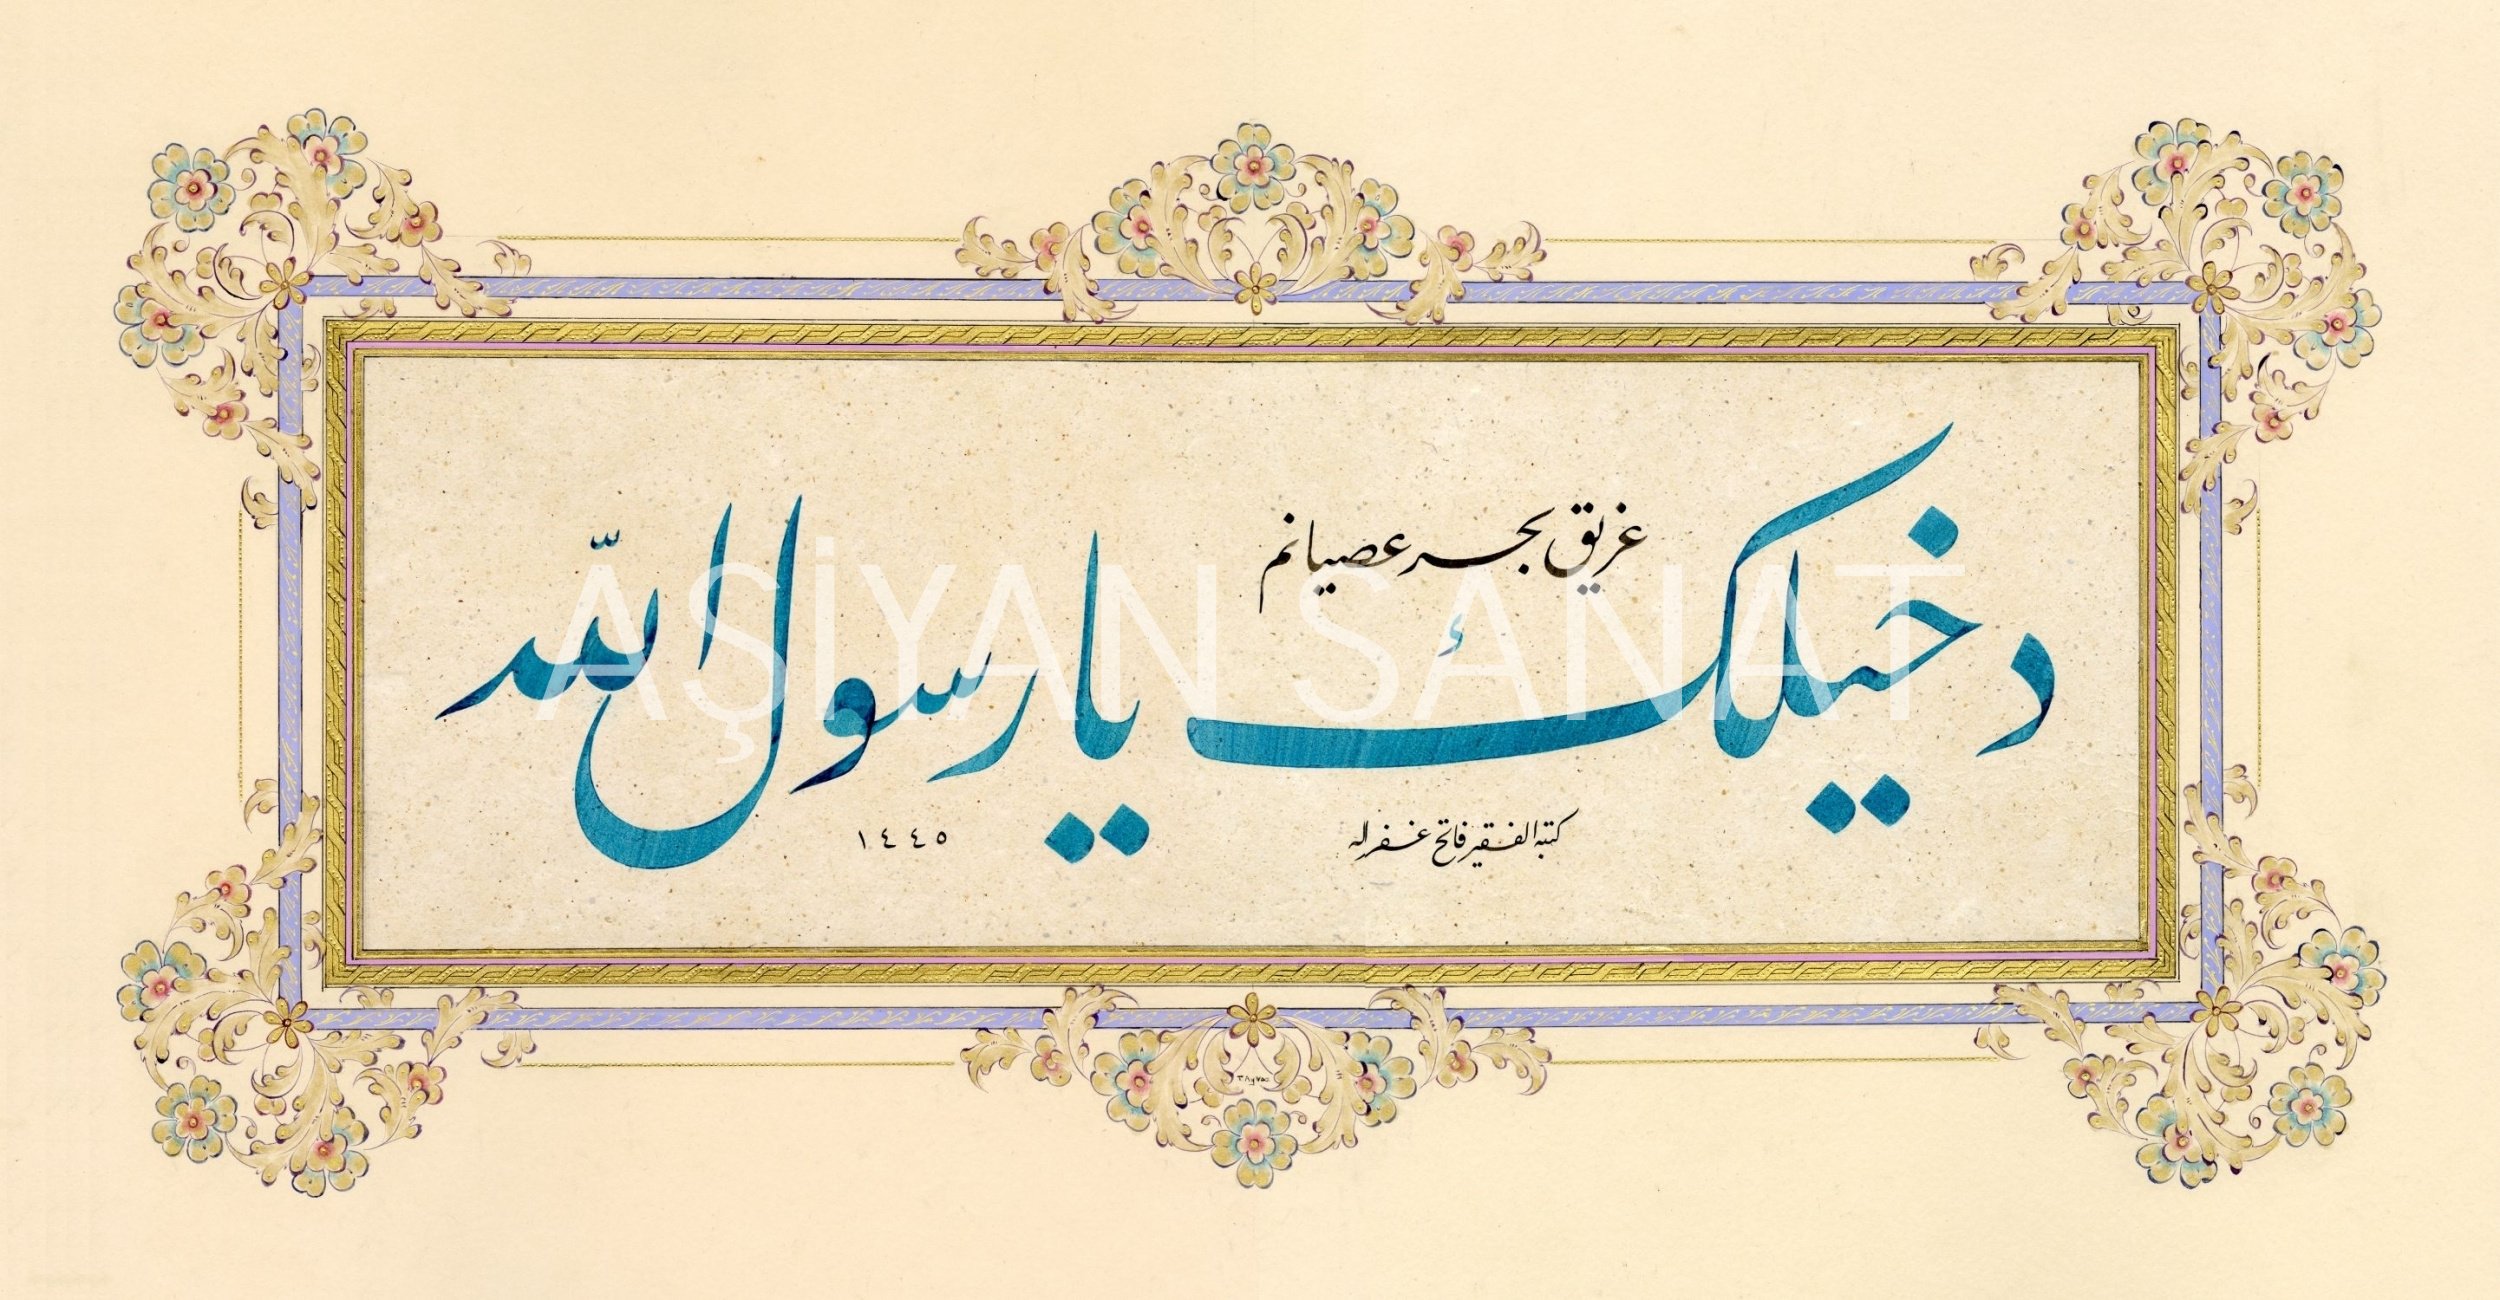 غريق بحر عصيانم
دخيلك يا رسول الله
كتبه الفقير فاتح غفر له
١٤٤٥
AŞİYAN SANAT